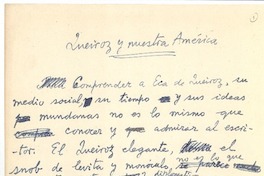 Queiroz y nuestra América
Comprender a Eca de Queiroz, su
medio social, su tiempo y sus ideas
mundanas no es lo mismo que
conocer y admirar al escri-
tor. El Queiroz elegante, el
snob de levita y monóculo, no es lo que